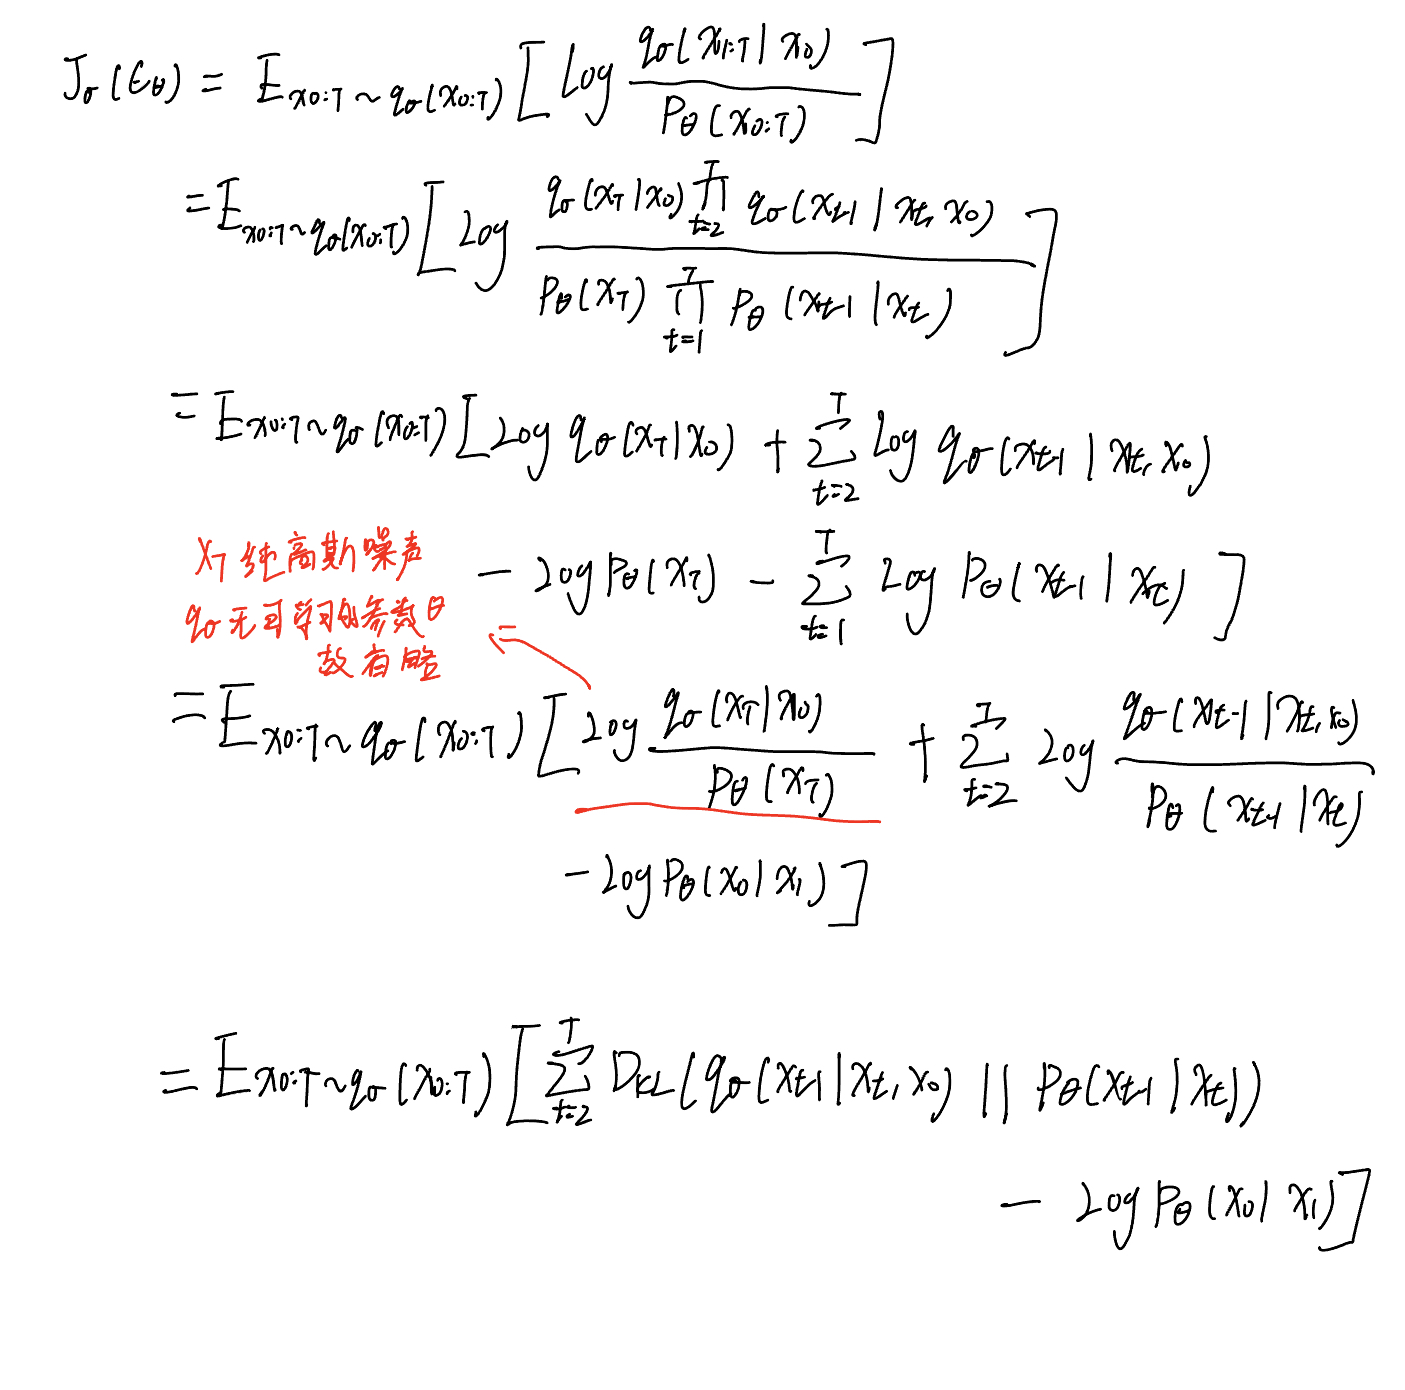 J_σ(ϵ_θ) = E_{x_{0:T}∼q_σ(x_{0:T})} [ Log \frac{q_σ(x_{1:T}|x_0)}{P_θ(x_{0:T})} ]
= E_{x_{0:T}∼q_σ(x_{0:T})} [ Log \frac{q_σ(x_T|x_0) ∏_{t=2}^{T} q_σ(x_{t-1}|x_t, x_0)}{P_θ(x_T) ∏_{t=1}^{T} P_θ(x_{t-1}|x_t)} ]
= E_{x_{0:T}∼q_σ(x_{0:T})} [ Log q_σ(x_T|x_0) + ∑_{t=2}^{T} Log q_σ(x_{t-1}|x_t, x_0)
- Log P_θ(x_T) - ∑_{t=1}^{T} Log P_θ(x_{t-1}|x_t) ]
x_T 纯高斯噪声
q_σ 无可学习的参数θ
故省略
= E_{x_{0:T}∼q_σ(x_{0:T})} [ Log \frac{q_σ(x_T|x_0)}{P_θ(x_T)} + ∑_{t=2}^{T} Log \frac{q_σ(x_{t-1}|x_t, x_0)}{P_θ(x_{t-1}|x_t)}
- Log P_θ(x_0|x_1) ]
= E_{x_{0:T}∼q_σ(x_{0:T})} [ ∑_{t=2}^{T} D_{KL}(q_σ(x_{t-1}|x_t, x_0) || P_θ(x_{t-1}|x_t))
- Log P_θ(x_0|x_1) ]